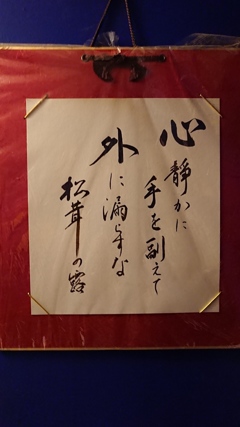 心静かに
手を副えて
外に漏らすな
松茸の露